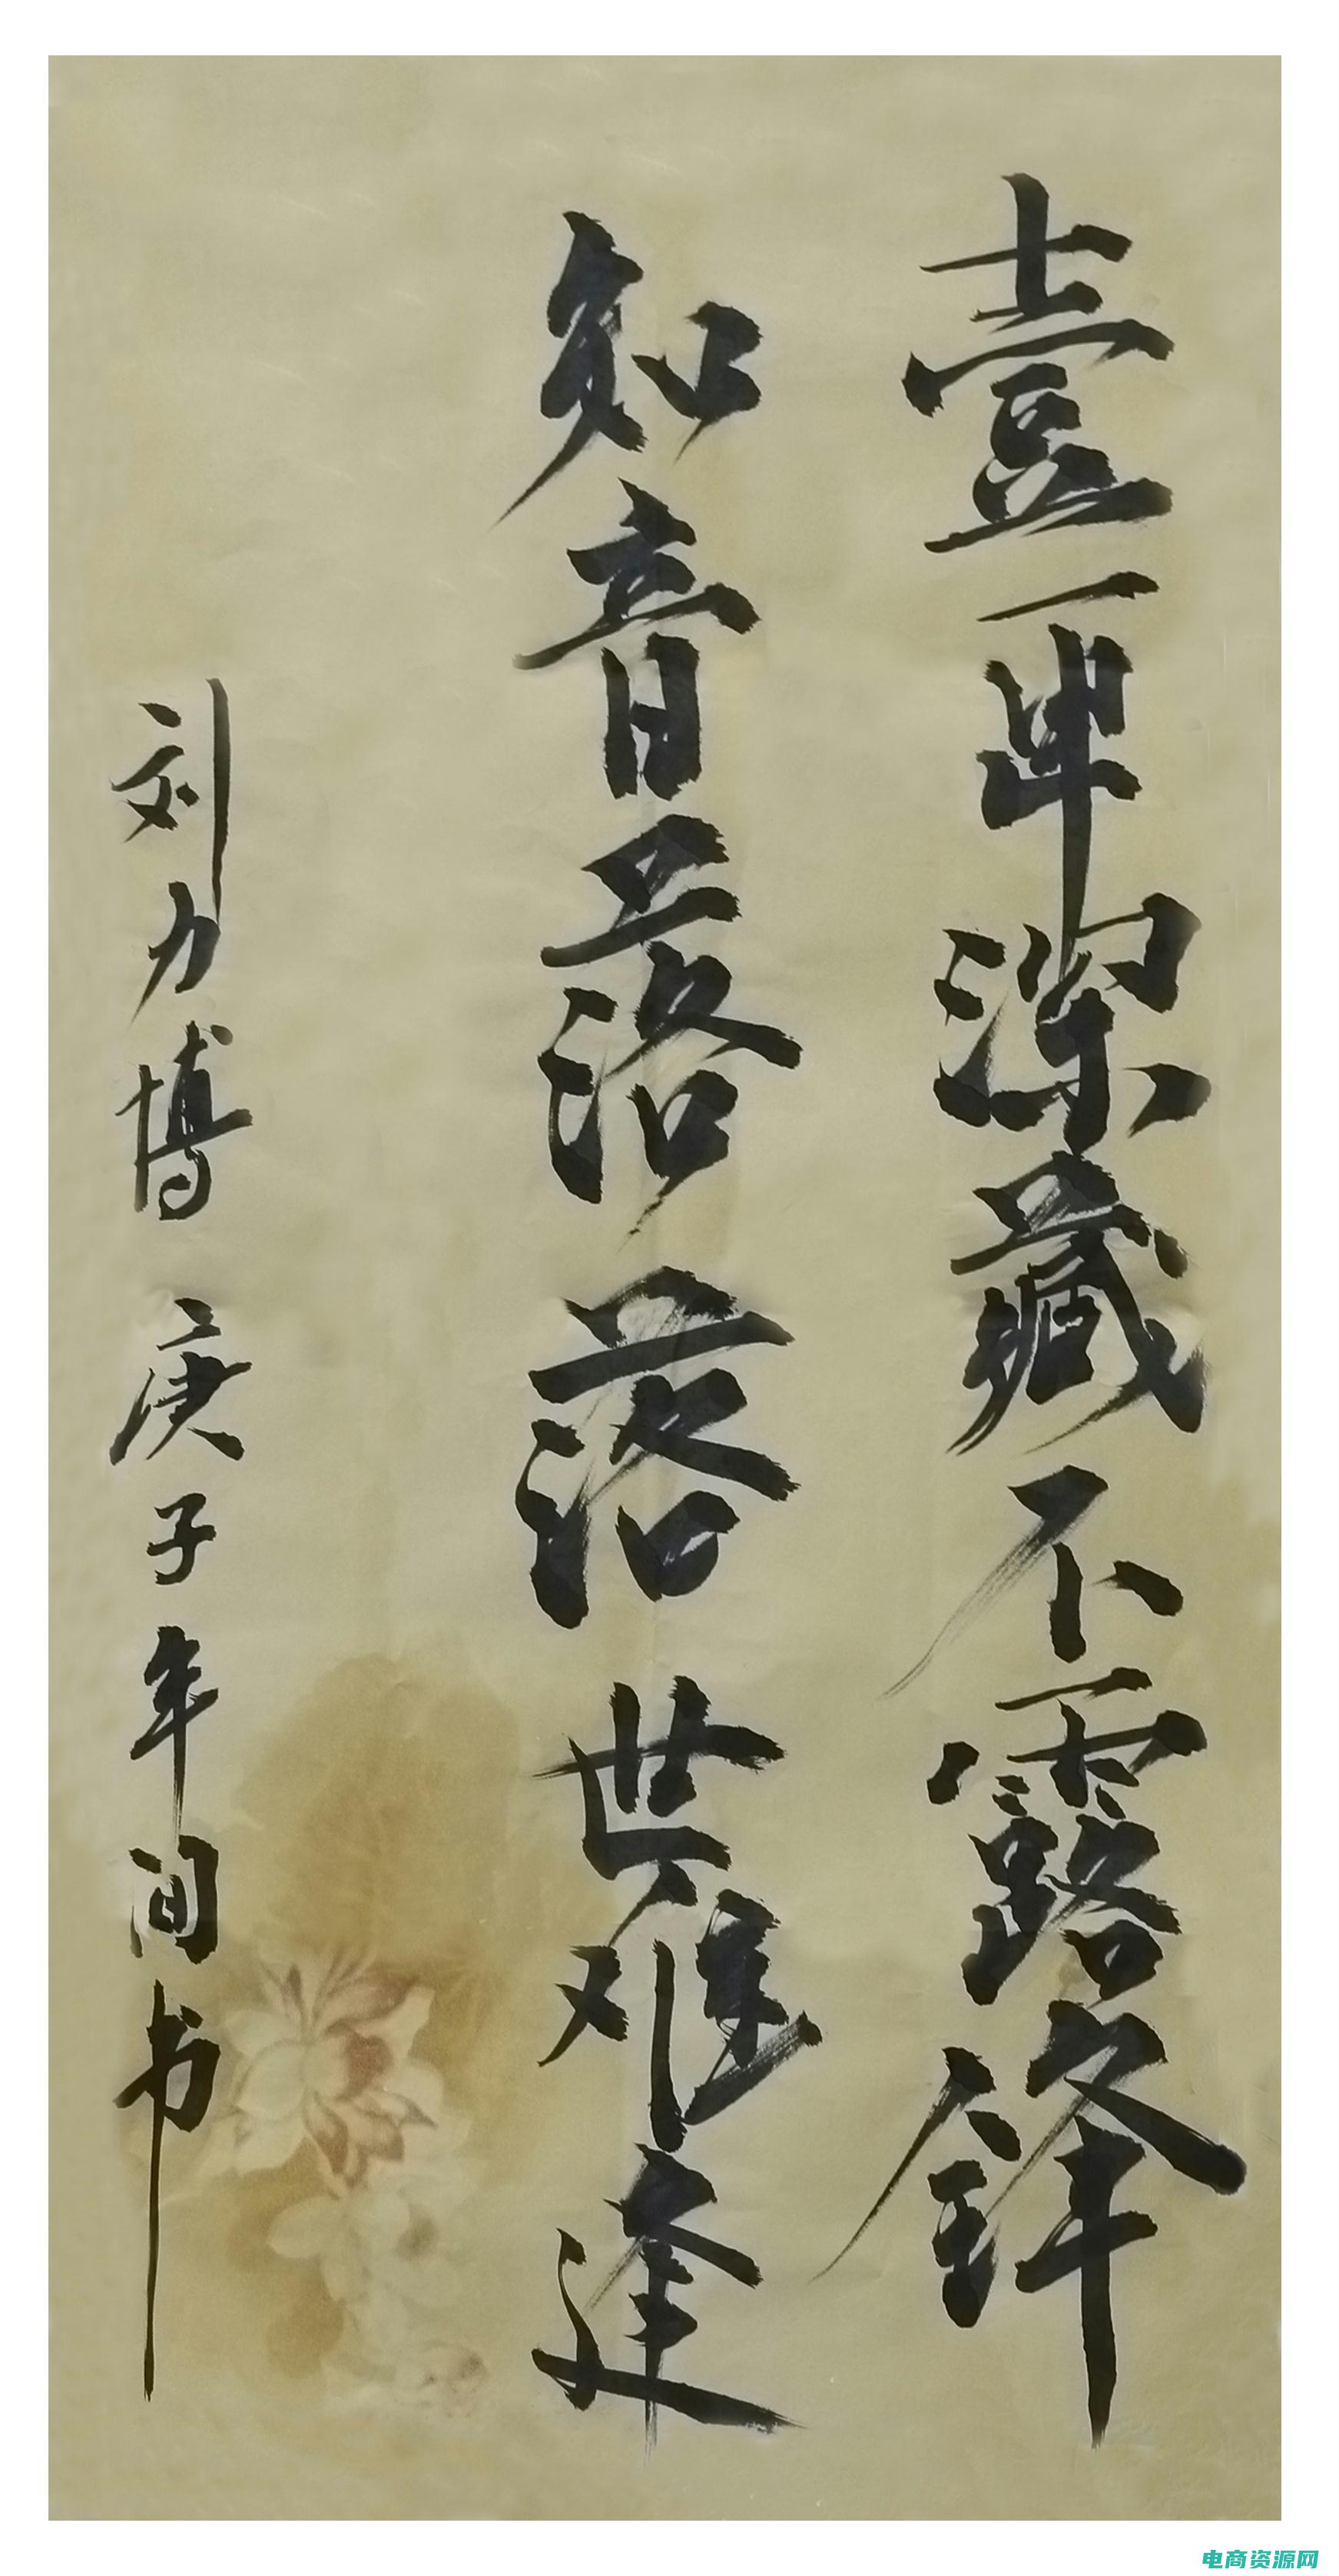 壹深藏不露鋒
知音落落世难逢
刘力博 庚子年间书
电商资源网